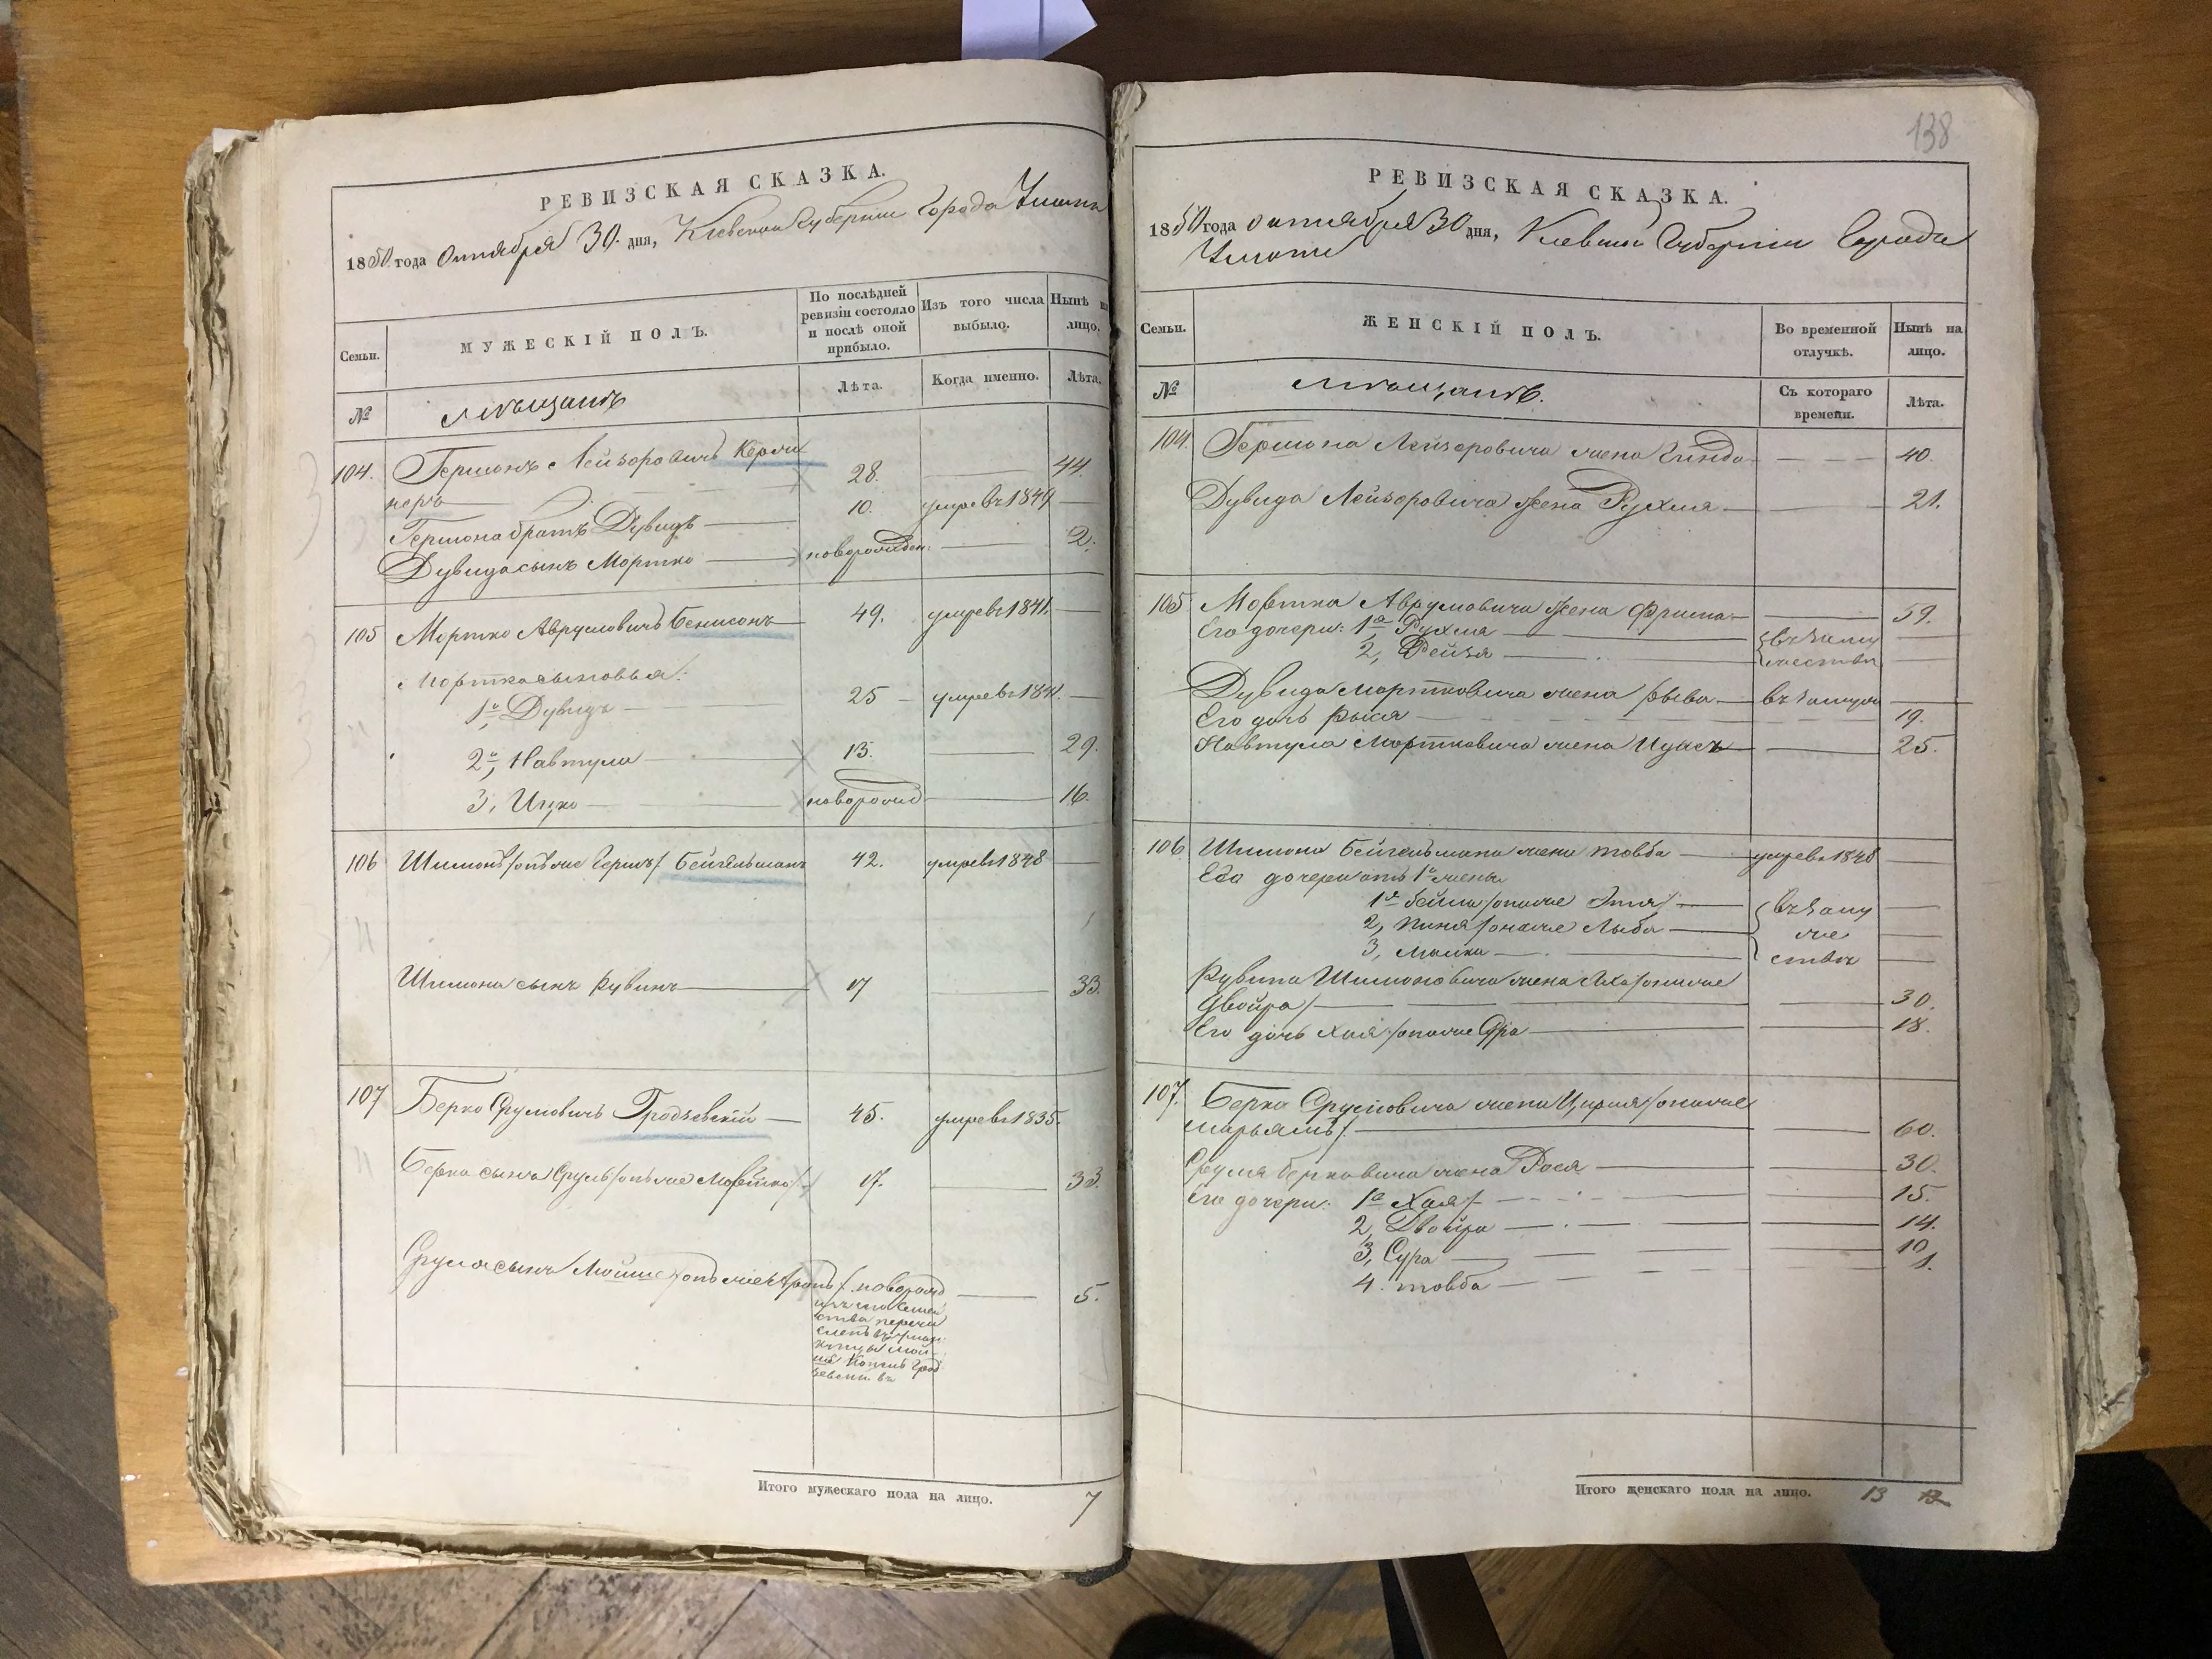 РЕВИЗСКАЯ СКАЗКА.
1850 года Октября 30. дня, Киевской Губернiи Города Умани
Семьи.
МУЖЕСКIЙ ПОЛЪ.
По послѣдней ревизiи состояло и послѣ оной прибыло.
Изъ того числа выбыло.
Нынѣ на лицо.
№
Мѣщанъ
Лѣта.
Когда именно.
Лѣта.
104. Гершонъ Лейзоровичъ
28. 44.
Гершона братъ Дувидъ 10. умре въ 1849
Дувида сынъ Мортко новорожден. 2.
105 Мортко Аврумовичъ Бенисонъ 49. умре въ 1841.
Мортка сыновья:
1й Дувидъ 25 умре въ 1841.
2й, Навтула 13. 29.
3, Ицко новорожд 16.
106 Шимонъ /онъ же Гершъ/ Бейгельманъ 42. умре въ 1848
Шимона сынъ Рувинъ 17 33.
107 Берко Срулович Гродзевскiй 45. умре въ 1835.
Берка сынъ Сруль /онъ же Мортко/ 17. 33.
Сруля сынъ новорожд 5.
Итого мужескаго пола на лицо. 7
138
РЕВИЗСКАЯ СКАЗКА.
1850 года октября 30 дня, Киевской Губернiи Города
Умани
Семьи.
ЖЕНСКIЙ ПОЛЪ.
Во временной отлучкѣ.
Нынѣ на лицо.
№
Мѣщанъ.
Съ котораго времени.
Лѣта.
104. Гершона Лейзеровича жена 40.
Дувида Лейзоровича жена Рухля 21.
105 Мортка Аврумовича жена Фрима 59.
Его дочери: 1я Рухля въ заму
2, Фейга жествѣ
Дувида Мортковича жена Рыва въ замуж
Его дочь Рыся 19.
Навтула Мортковича жена 25.
106 Шимона Бейгельмана жена Товба умре въ 1848
Его дочери отъ 1й жены
1я Бейла /она же Этля/ въ заму
2, /она же Лыба же
3, Малка ствѣ
Рувина Шимоновича жена /она же
Двойра/ 30.
Его дочь Хая /она же Сура 18.
107. Берка Срулевича жена /она же
Марьямъ/ 60.
Сруля Берковича жена Рося 30.
Его дочери: 1я Хая 15.
2, Двойра 14.
3, Сура 10.
4. Товба 1.
Итого женскаго пола на лицо. 13 12